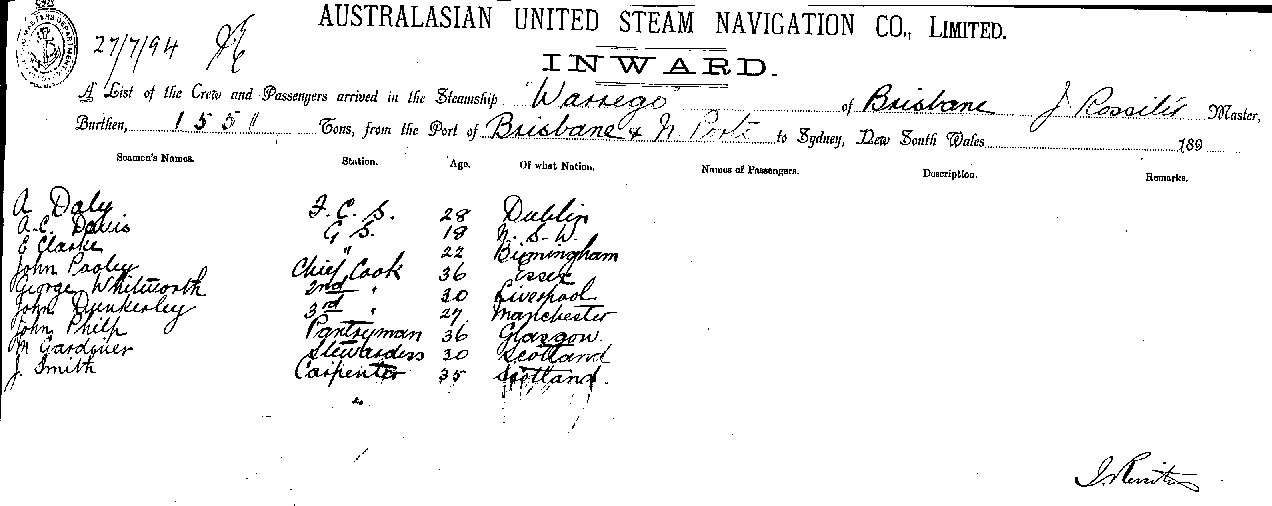 AUSTRALASIAN UNITED STEAM NAVIGATION CO., LIMITED.
27/7/94
INWARD.
A List of the Crew and Passengers arrived in the Steamship "Warrego" of Brisbane J Rossiter Master,
Burthen, 1551 Tons, from the Port of Brisbane & N. Ports to Sydney, New South Wales 189
Seamen's Names. Station. Age. Of what Nation. Names of Passengers. Description. Remarks.
A Daly F. C. S. 28 Dublin
A.C. Davis G S. 18 N. S. W.
E Clarke " 22 Birmingham
John Pooley Chief Cook 36 Essex
George Whitworth 2nd " 30 Liverpool
John Dunkerley 3rd " 27 Manchester
John Philp Pantryman 36 Glasgow
M Gardner Stewardess 30 Scotland
J. Smith Carpenter 35 Scotland.